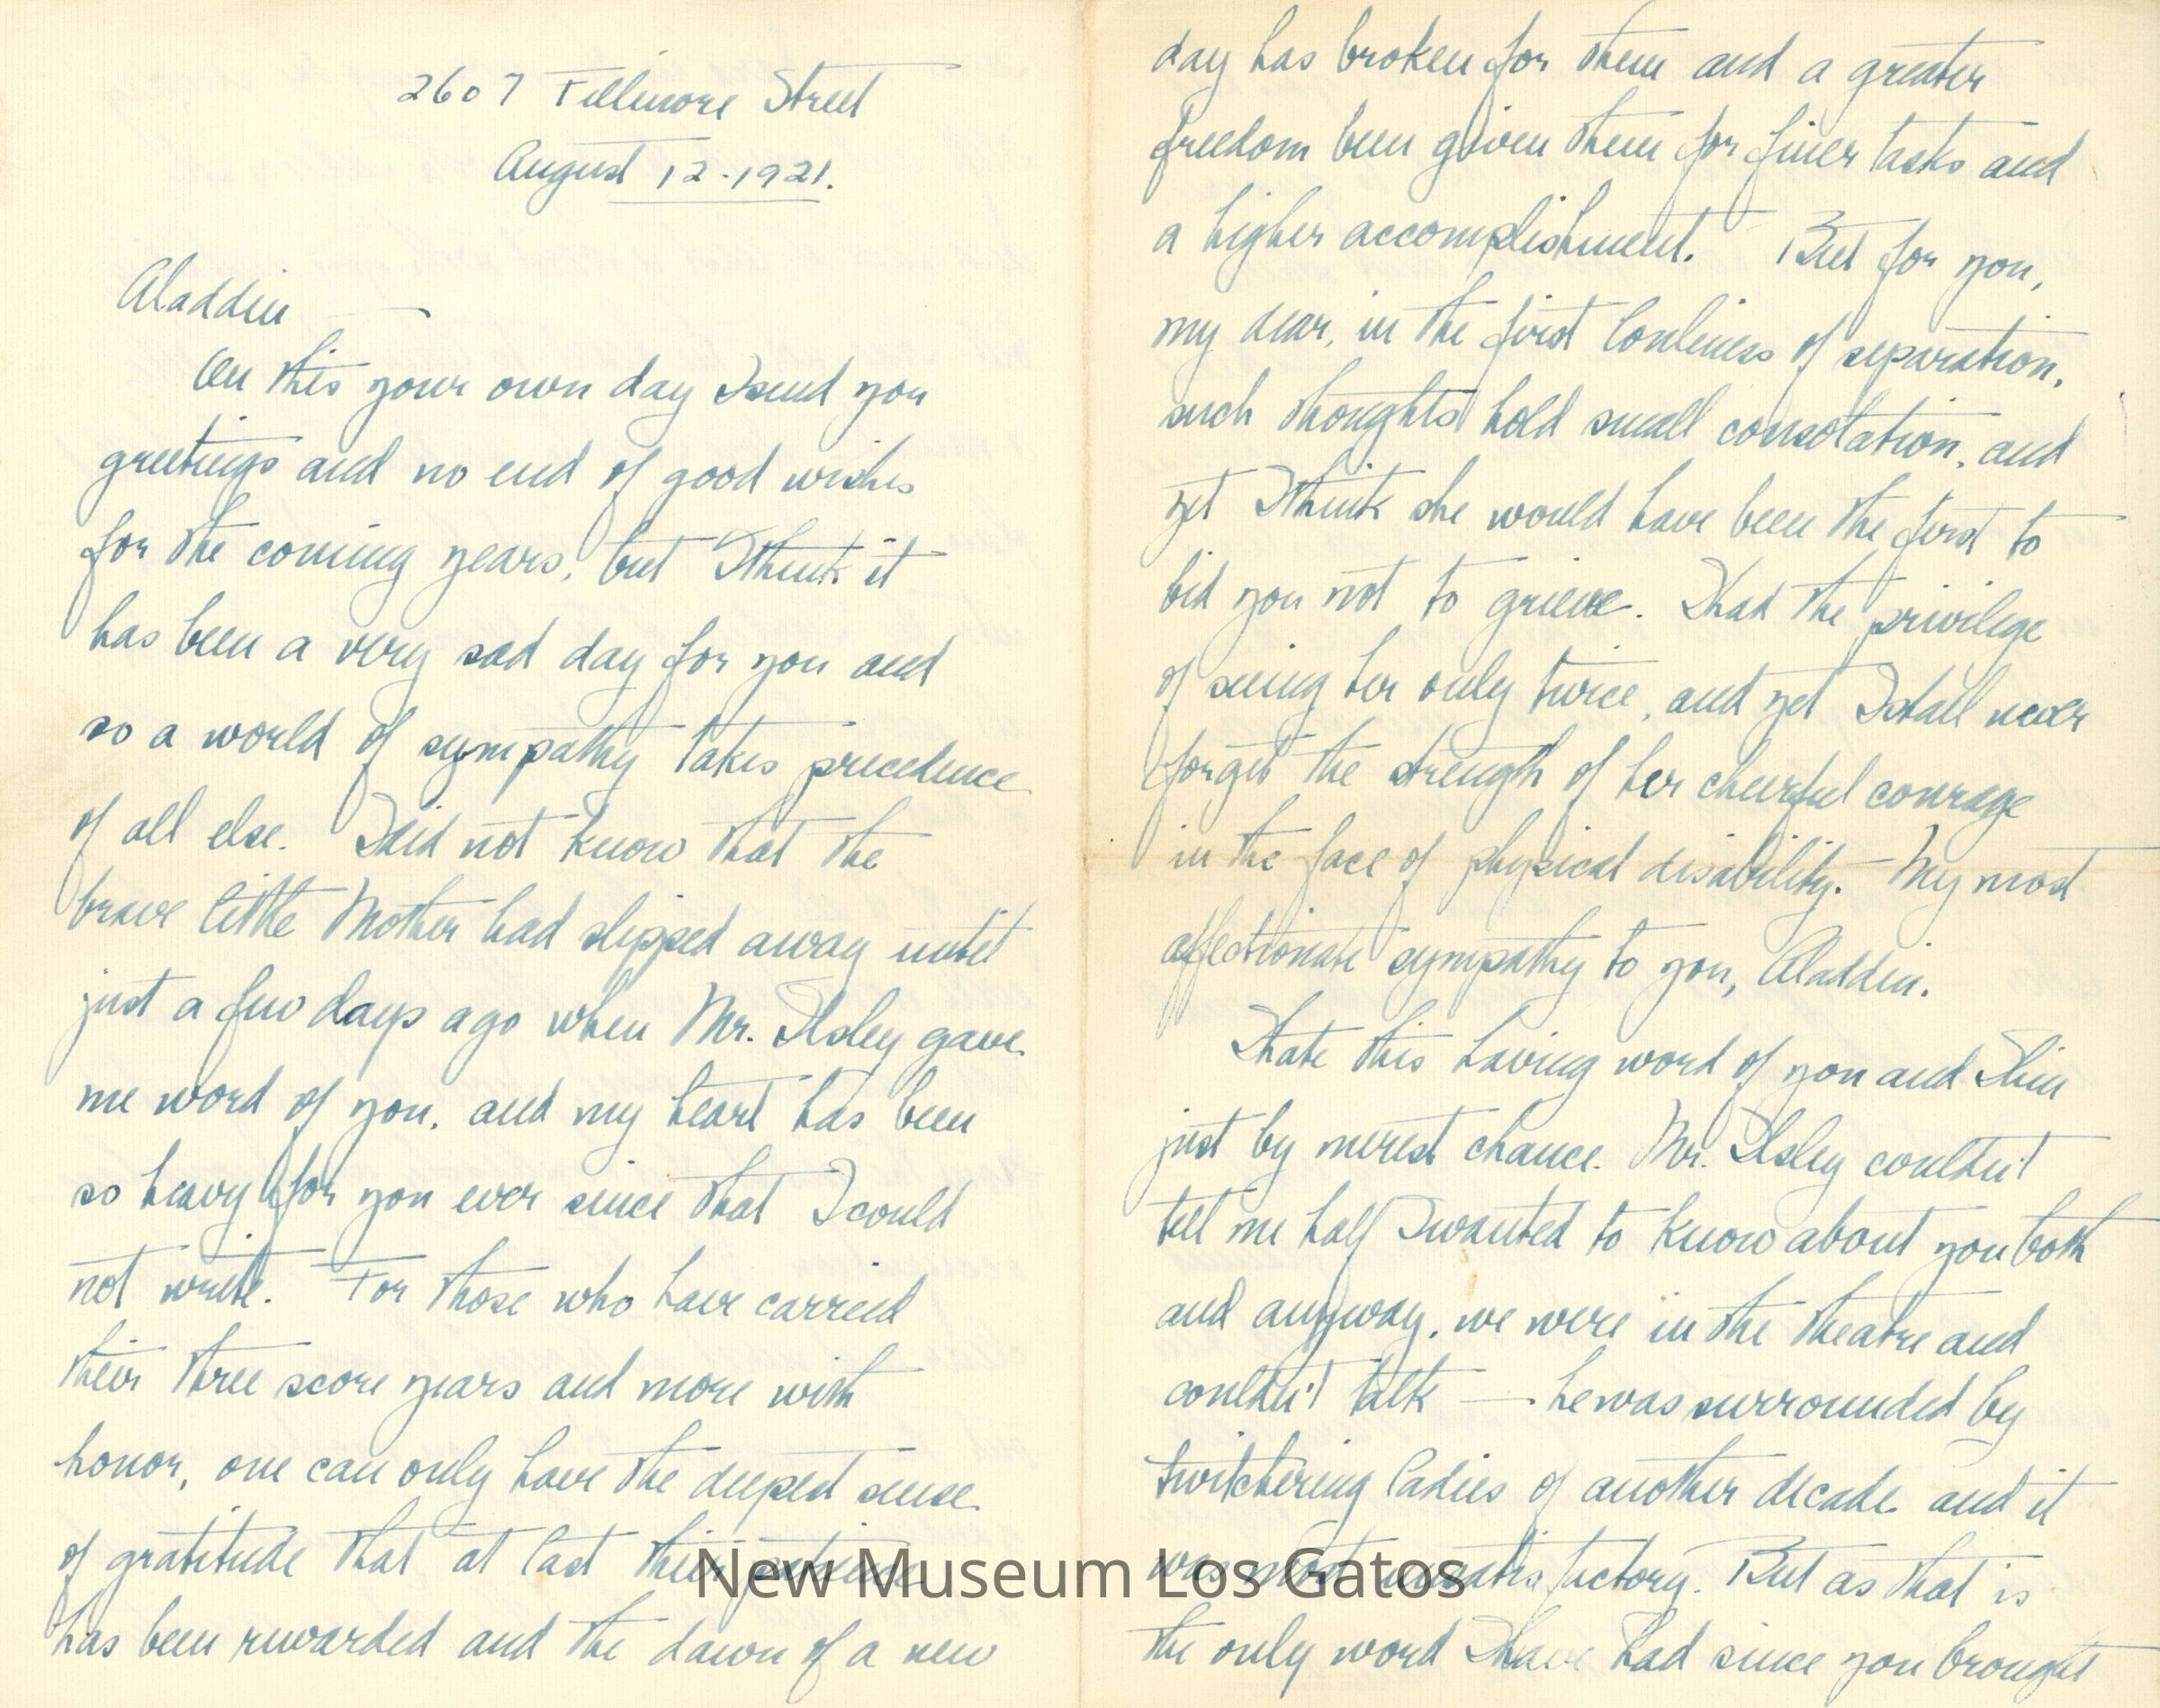 2607 Fillmore Street
August 12-1921.
Aladdin
On this your own day I send you
greetings and no end of good wishes
for the coming years, but I think it
has been a very sad day for you and
so a world of sympathy takes precedence
of all else. I did not know that the
brave little Mother had slipped away until
just a few days ago when Mr. Ilsley gave
me word of you, and my heart has been
so heavy for you ever since that I could
not write. For those who have carried
their three score years and more with
honor, one can only have the deepest sense
of gratitude that at last their patience
has been rewarded and the dawn of a new
day has broken for them and a greater
freedom been given them for finer tasks and
a higher accomplishment. But for you,
my dear, in the first lonliness of separation,
such thoughts hold small consolation, and
yet I think she would have been the first to
bid you not to grieve. I had the privilege
of seeing her only twice, and yet I shall never
forget the strength of her cheerful courage
in the face of physical disability. My most
affectionate sympathy to you, Aladdin.
I hate this having word of you and Slim
just by merest chance. Mr. Ilsley couldn't
tell me half I wanted to know about you both
and anyway, we were in the theatre and
couldn't talk — he was surrounded by
twitchering ladies of another decade and it
was most unsatisfactory. But as that is
the only word I have had since you brought
New Museum Los Gatos